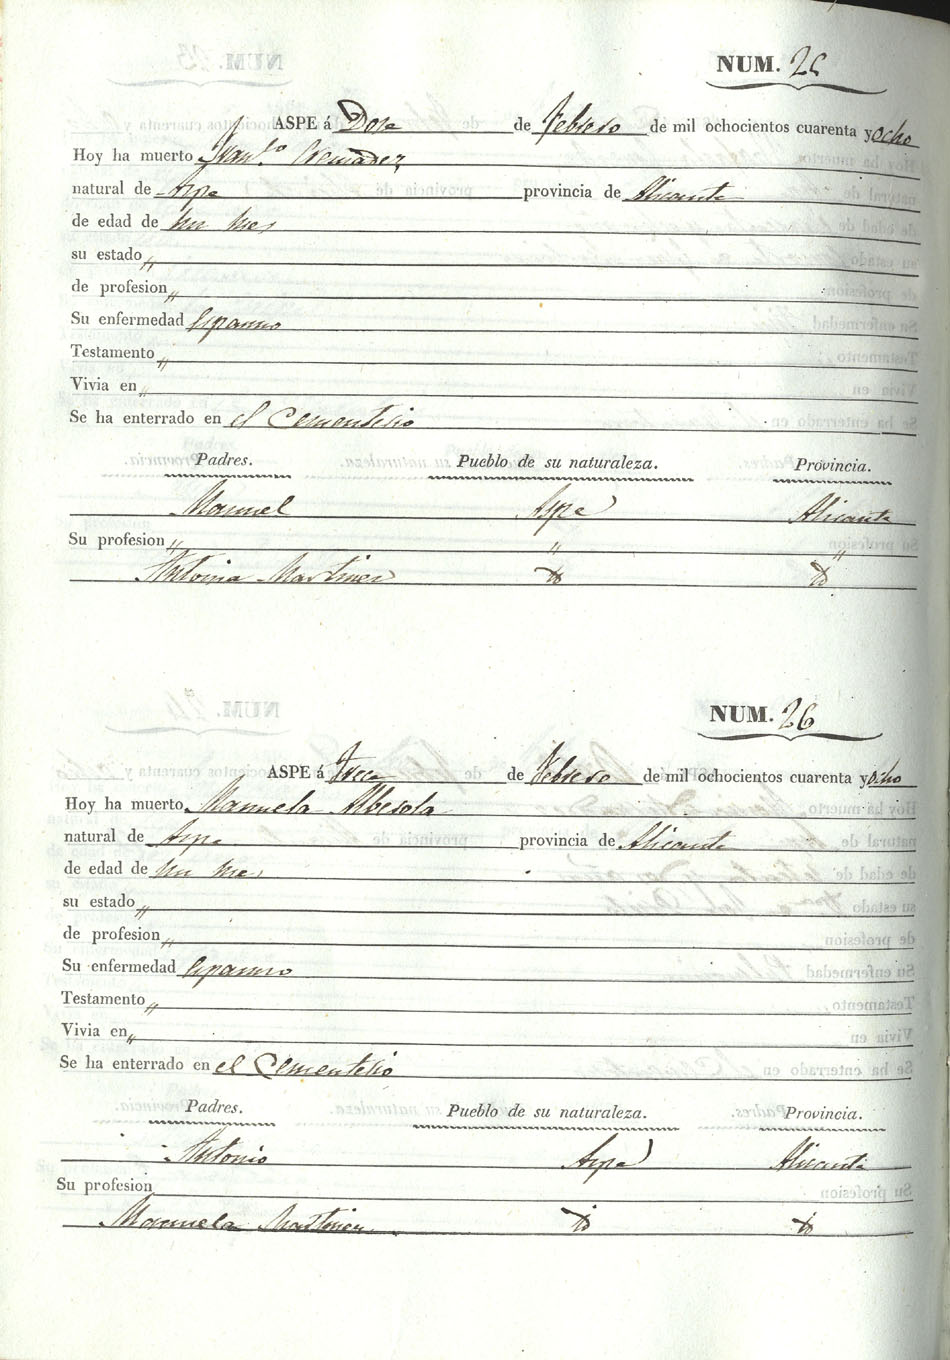 NUM. 25
ASPE á Dose de Febrero de mil ochocientos cuarenta y ocho
Hoy ha muerto Fran.co Cremadez
natural de Aspe provincia de Alicante
de edad de un mes
su estado „
de profesion „
Su enfermedad Espasmo
Testamento „
Vivia en „
Se ha enterrado en el Cementelio
Padres. Pueblo de su naturaleza. Provincia.
Manuel Aspe Alicante
Su profesion „ „ „
Antonia Martinez
NUM. 26
ASPE á Trece de Febrero de mil ochocientos cuarenta y ocho
Hoy ha muerto Manuela Albesola
natural de Aspe provincia de Alicante
de edad de un mes
su estado „
de profesion „
Su enfermedad Espasmo
Testamento „
Vivia en „
Se ha enterrado en el Cementelio
Padres. Pueblo de su naturaleza. Provincia.
Antonio Aspe Alicante
Su profesion
Manuela Martinez